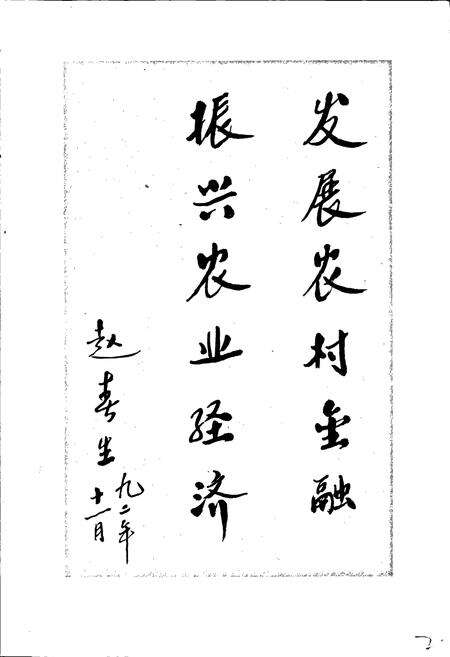 发展农村金融
振兴农业经济
赵春生
九二年
十一月